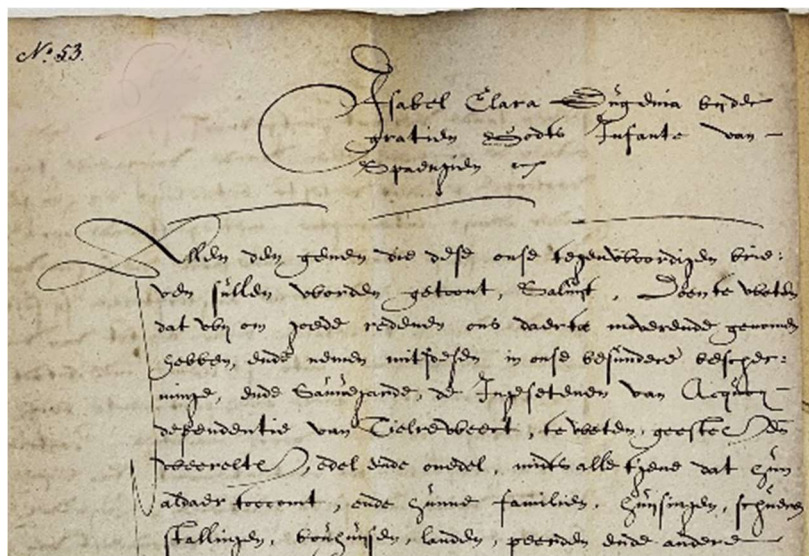 No. 53.
Isabel Clara Eugenia bijder
gratien Godts Infante van
Spaengien etc
Allen den genen die dese onse tegenwoordigen brie:
ven sullen worden getoont, Saluijt, Doen te weten
dat wij om goede redenen ons daertoe moverende genomen
hebben, ende nemen mitsdesen in onse besundere bescher:
minge, ende Sauvegarde, de Ingesetenen van Acquoy
dependentie van Tielreweert, te weten, geestel en
weereltl, edel ende onedel, mits alle tgene dat hun
aldaer toecomt, ende hunne familien, huijsingen, schueren
stallingen, bouhuijsen, landen, peerden ende andere